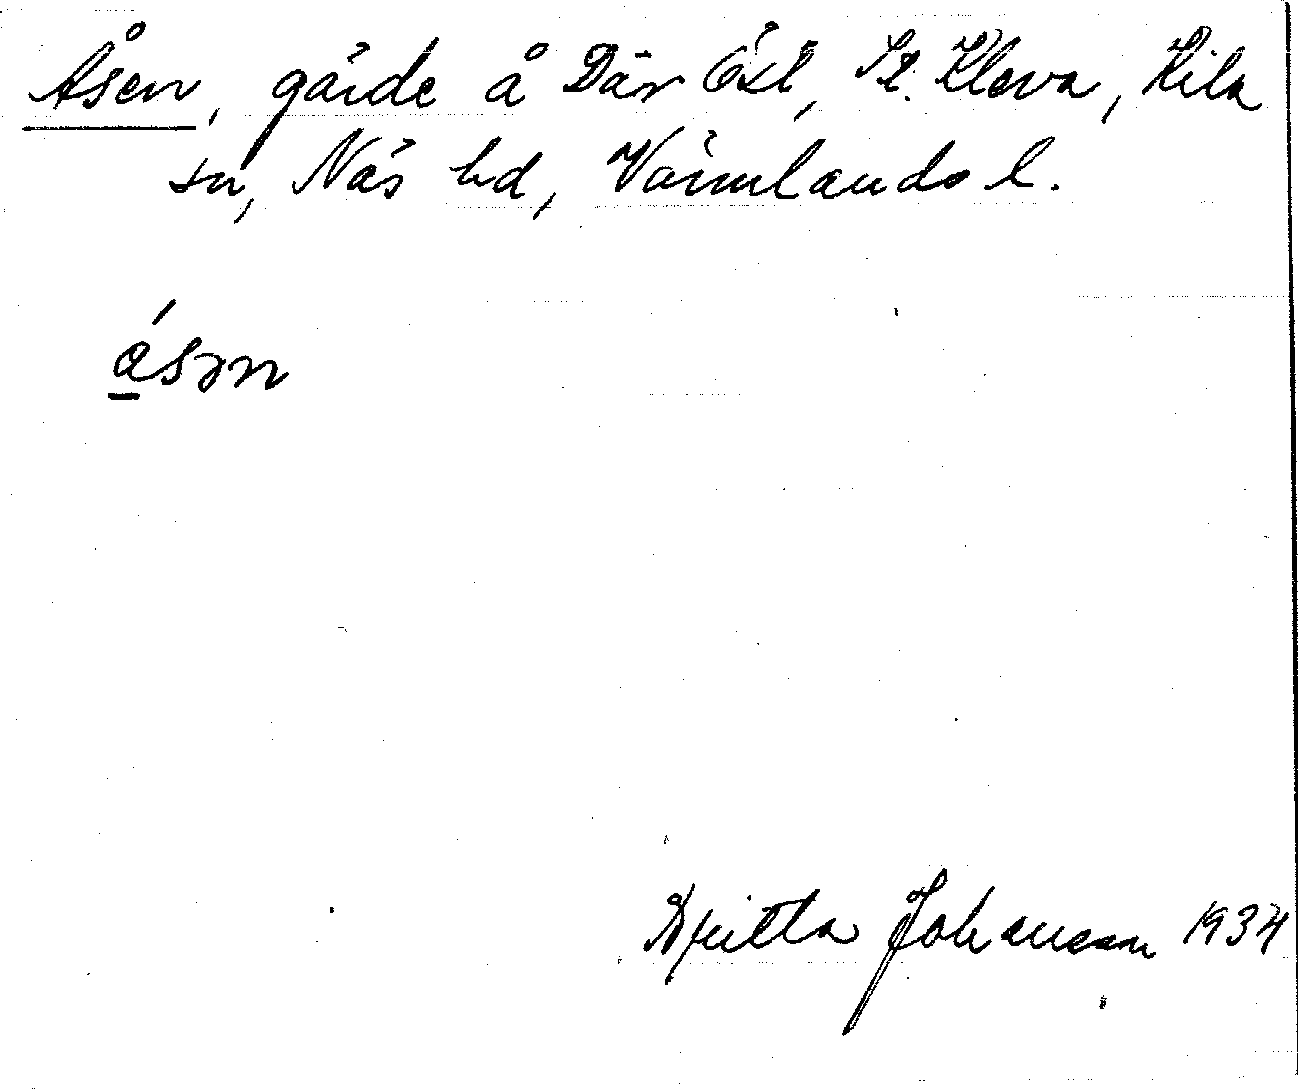 Åsen, gärde å Där Öst, St. Kleva, Kila
sn, Näs hd, Värmlands l.
ásɘn
Johansson 1934